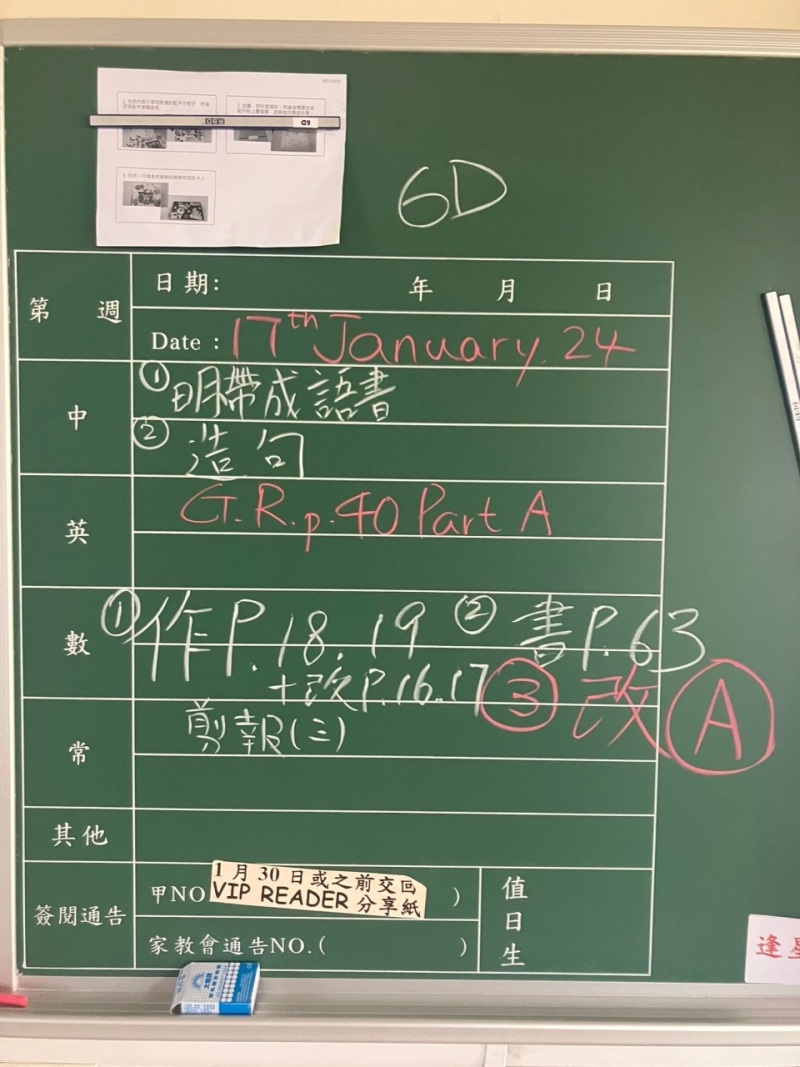 6D
第 週
日期: 年 月 日
Date : 17th January, 24
中
① 明帶成語書
② 造句
英
G.R.p.40 Part A
數
① 作P.18.19 ② 書P.63
+改P.16.17 ③ 改 A
常
剪報(三)
其他
簽閱通告
甲NO )
1月30日或之前交回
VIP READER 分享紙
家教會通告NO.( )
值日生
逢星